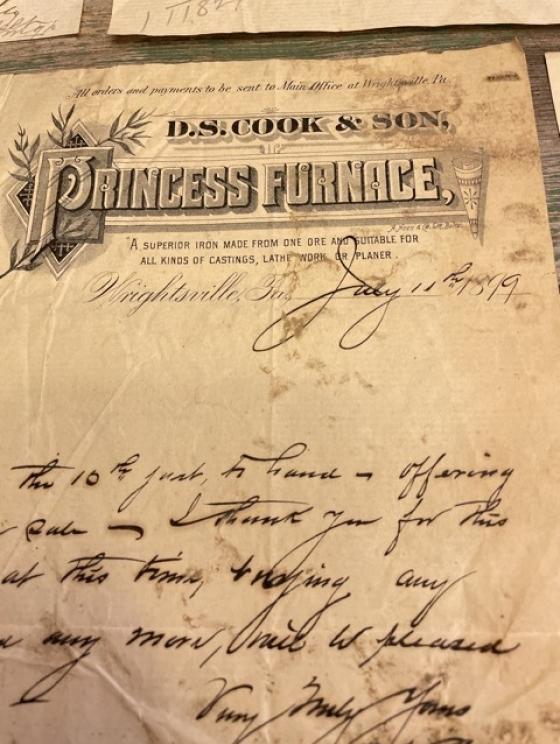 111827
All orders and payments to be sent to Main Office at Wrightsville, Pa.
D.S. COOK & SON,
PRINCESS FURNACE,
"A SUPERIOR IRON MADE FROM ONE ORE AND SUITABLE FOR
ALL KINDS OF CASTINGS, LATHE WORK OR PLANER.
Wrightsville, Pa., July 11th 1899
the 10th just, to hand – offering
sale – I thank you for this
at this time, buying any
any more, will be pleased
Very truly Yours